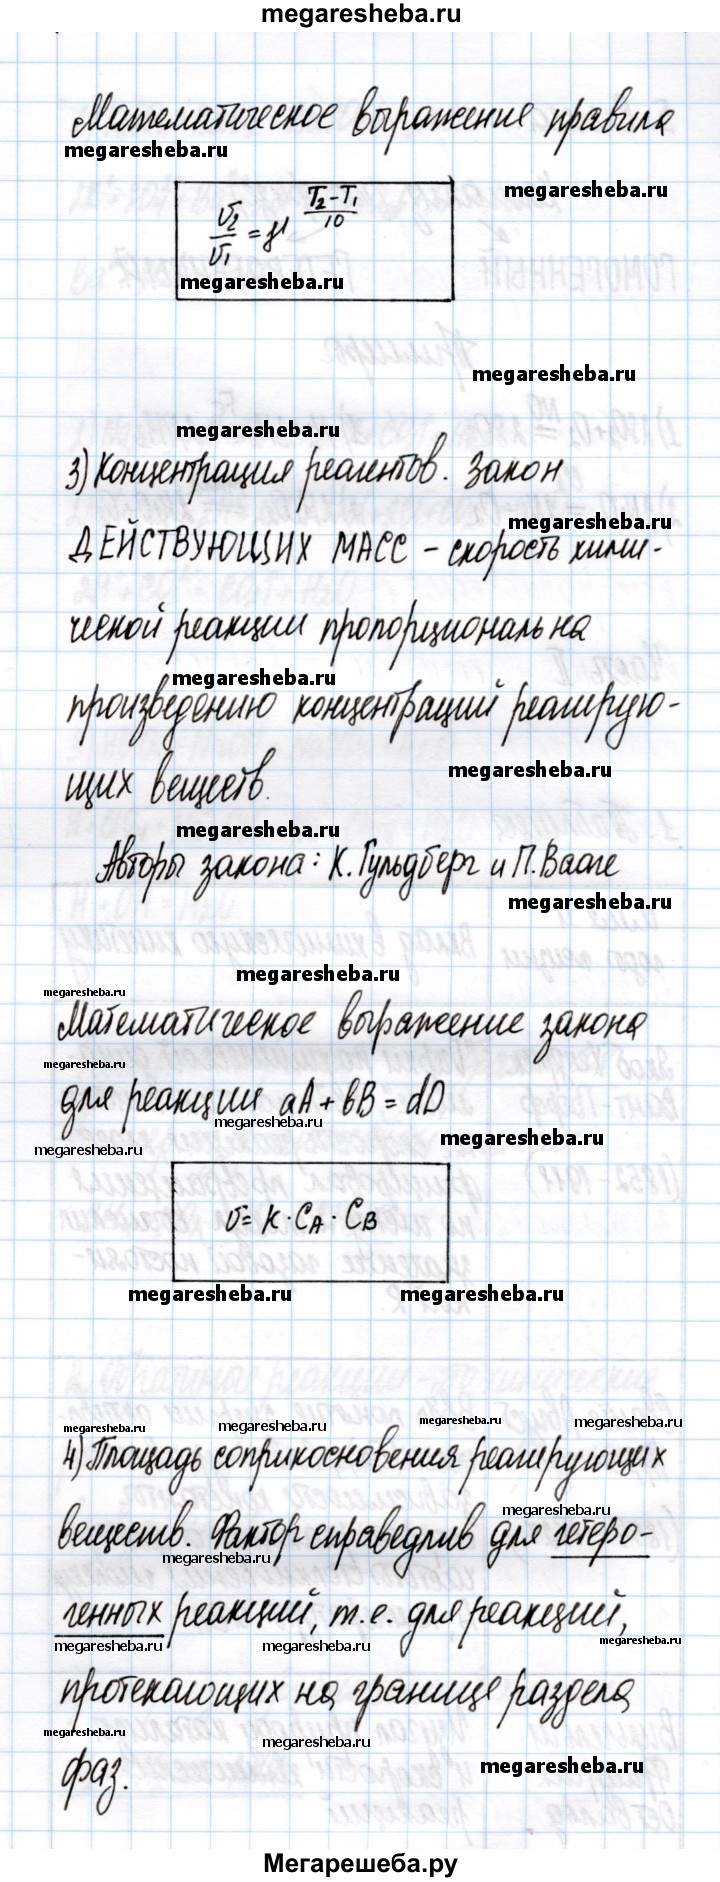 megaresheba.ru
Математическое выражение правила
megaresheba.ru
megaresheba.ru
υ₂/υ₁ = γ^((T₂-T₁)/10)
megaresheba.ru
megaresheba.ru
megaresheba.ru
3) Концентрация реагентов. Закон
megaresheba.ru
ДЕЙСТВУЮЩИХ МАСС – скорость хими-
ческой реакции пропорциональна
megaresheba.ru
произведению концентраций реагирую-
megaresheba.ru
щих веществ.
megaresheba.ru
Авторы закона: К. Гульдберг и П. Вааге
megaresheba.ru
megaresheba.ru
megaresheba.ru
Математическое выражение закона
megaresheba.ru
для реакции aA + bB = dD
megaresheba.ru
megaresheba.ru
megaresheba.ru
υ = K · CA · CB
megaresheba.ru megaresheba.ru
megaresheba.ru megaresheba.ru megaresheba.ru megaresheba.ru
4) Площадь соприкосновения реагирующих
megaresheba.ru
веществ. Фактор справедлив для гетеро-
megaresheba.ru
генных реакций, т.е. для реакций,
megaresheba.ru megaresheba.ru megaresheba.ru
протекающих на границе раздела
megaresheba.ru
megaresheba.ru
фаз.
megaresheba.ru
Мегарешеба.ру